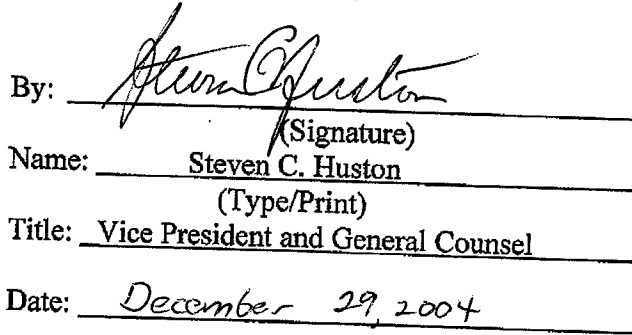 By: Steven C Huston
(Signature)
Name: Steven C. Huston
(Type/Print)
Title: Vice President and General Counsel
Date: December 29, 2004